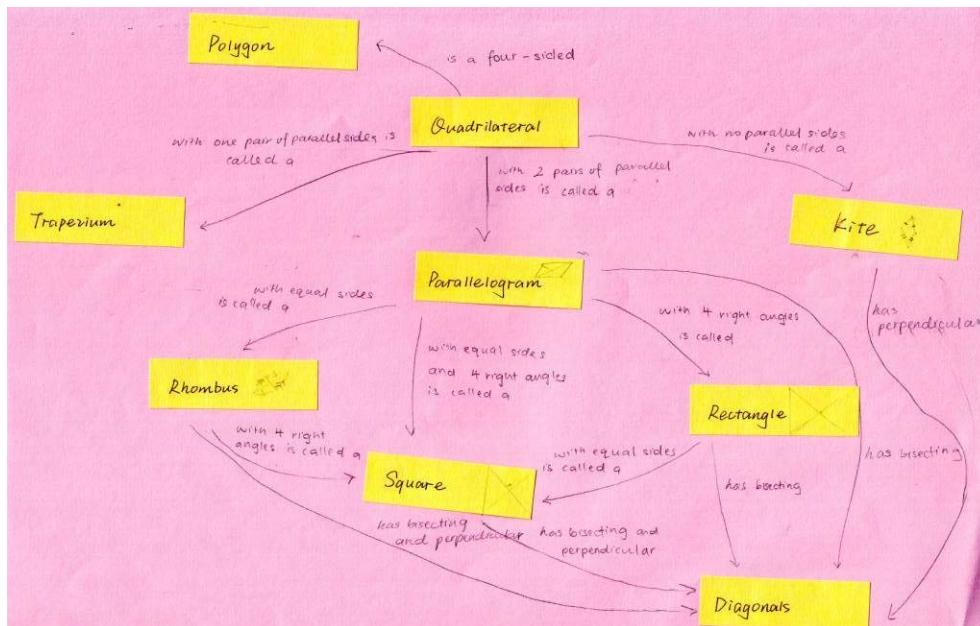 Polygon
is a four-sided
Quadrilateral
with one pair of parallel sides is
called a
with no parallel sides
is called a
with 2 pairs of parallel
sides is called a
Trapezium
Kite
Parallelogram
with equal sides
is called a
with 4 right angles
is called
has
perpendicular
with equal sides
and 4 right angles
is called a
Rhombus
Rectangle
with 4 right
angles is called a
with equal sides
is called a
has bisecting
has bisecting
Square
has bisecting
and perpendicular
has bisecting and
perpendicular
Diagonals